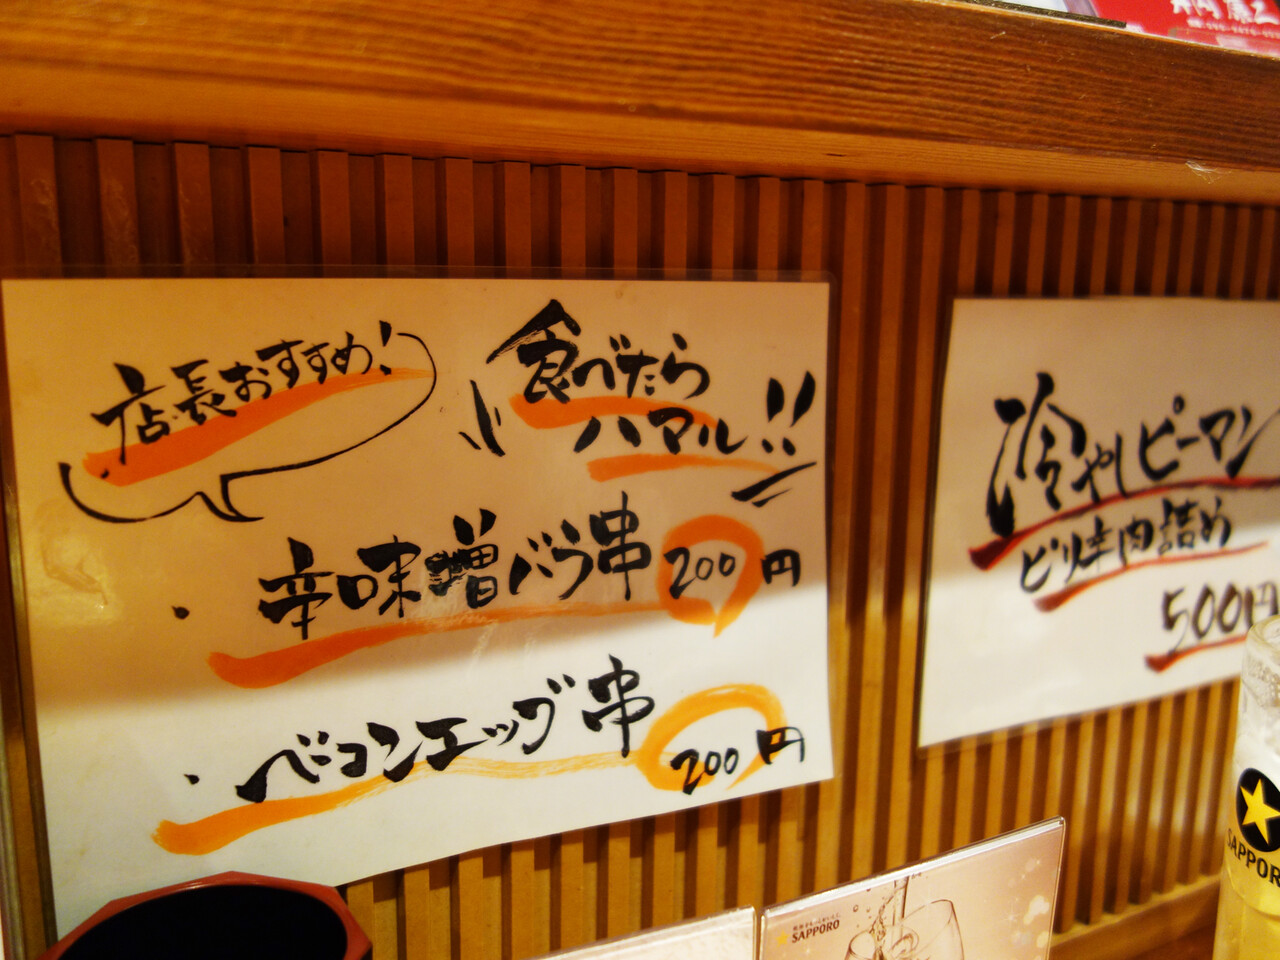 店長おすすめ!
食べたら
ハマル!!
・辛味噌バラ串 200円
・ベーコンエッグ串 200円
冷やしピーマン
ピリ辛肉詰め
500円
SAPPORO
SAPPORO